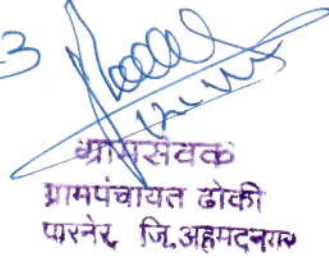 3
ग्रामसेवक
ग्रामपंचायत ढोकी
पारनेर, जि.अहमदनगर